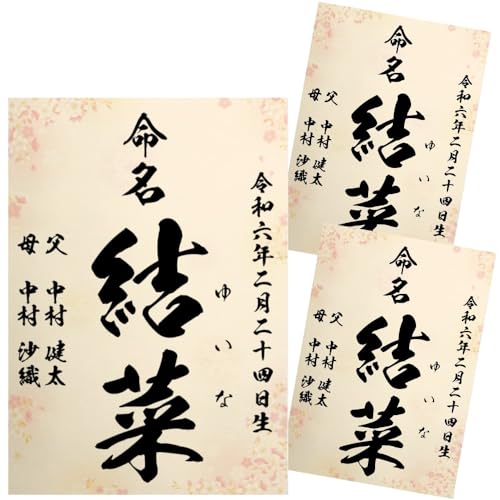 令和六年二月二十四日生
命名
結菜
ゆいな
父 中村 健太
母 中村 沙織
令和六年二月二十四日生
命名
結菜
ゆいな
父 中村 健太
母 中村 沙織
令和六年二月二十四日生
命名
結菜
ゆいな
父 中村 健太
母 中村 沙織